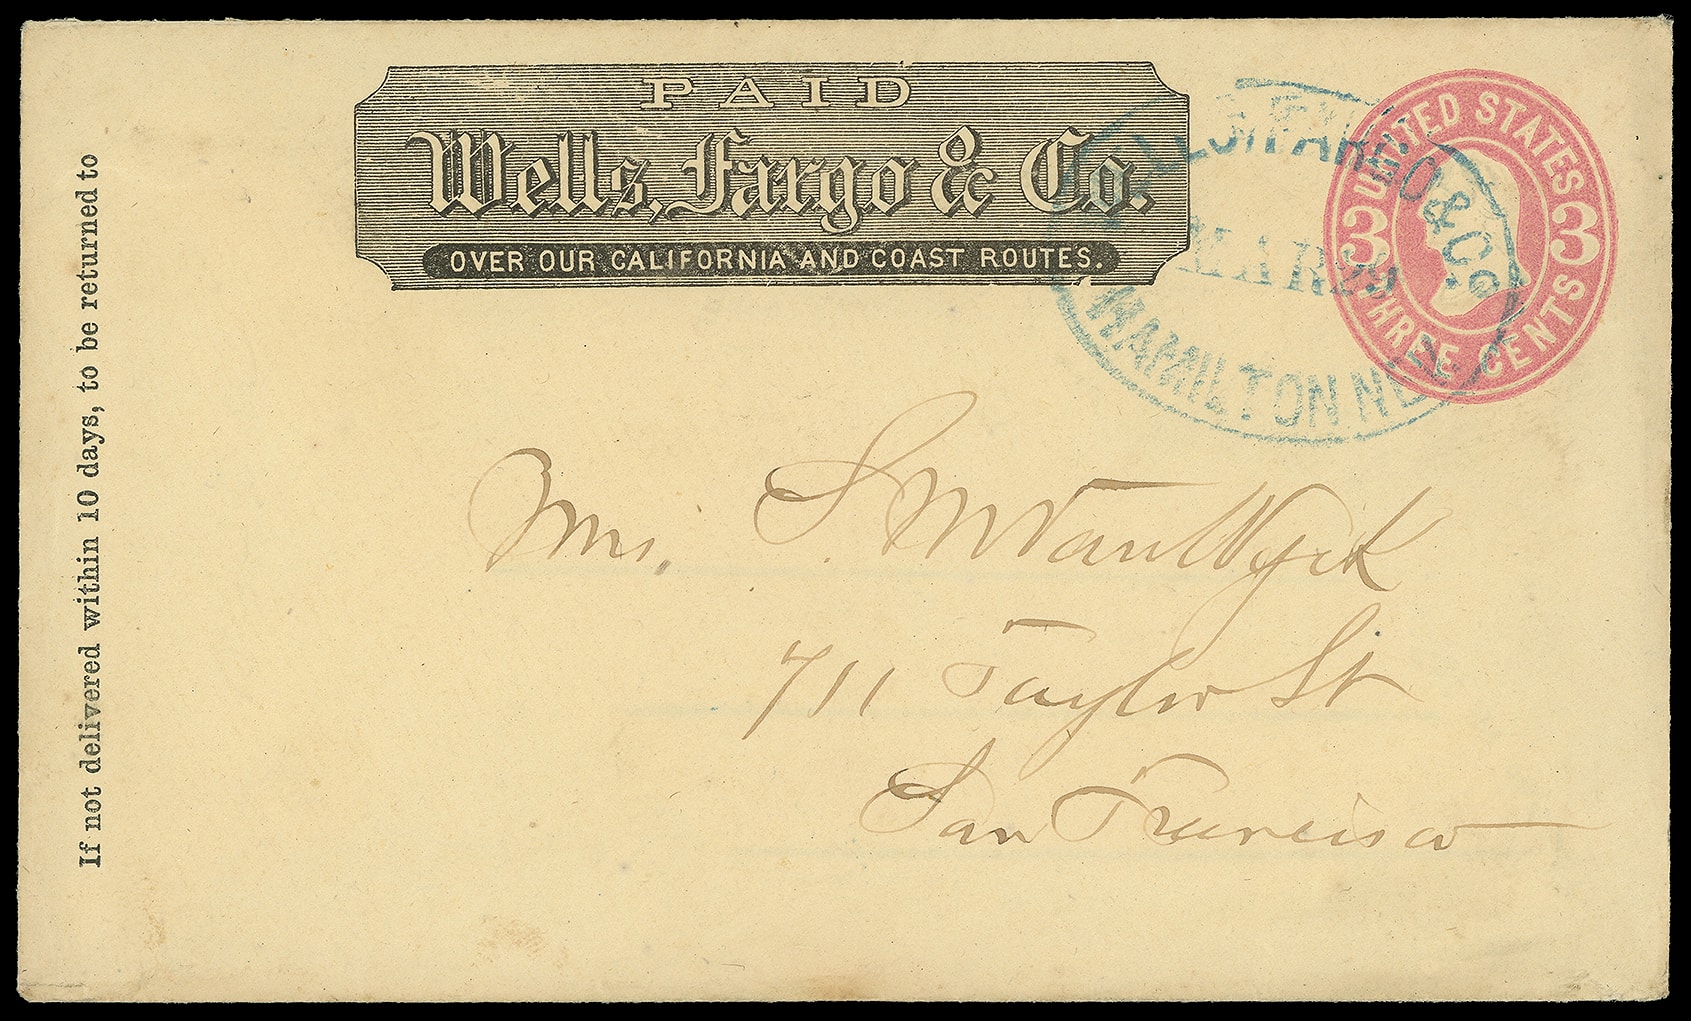 PAID
Wells, Fargo & Co.
OVER OUR CALIFORNIA AND COAST ROUTES.
UNITED STATES
3 3
THREE CENTS
WELLS FARGO & Co
MAR 29
HAMILTON NEV
If not delivered within 10 days, to be returned to
Mrs. S. M Van Wyck
711 Taylor St
San Francisco